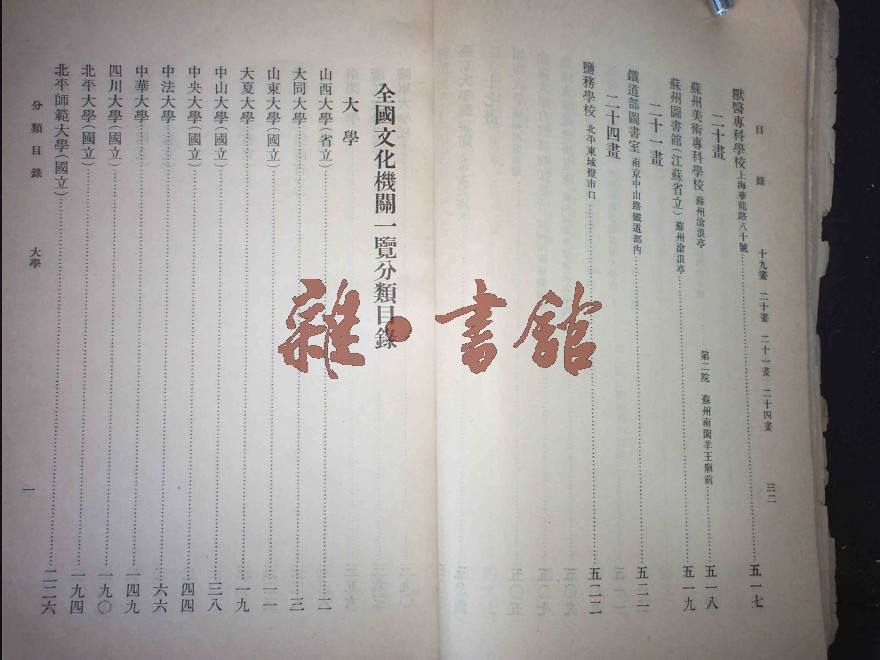 目錄 十九畫 二十畫 二十一畫 二十四畫 三二
獸醫專科學校 上海華龍路八十號 五一七
二十畫
蘇州美術專科學校 蘇州滄浪亭 第二院 蘇州南園羊王廟前 五一八
蘇州圖書館(江蘇省立) 蘇州滄浪亭 五一九
二十一畫
鐵道部圖書室 南京中山路鐵道部內 五二一
二十四畫
鹽務學校 北平東城燈市口 五二二
全國文化機關一覽分類目錄
大學
山西大學(省立) 二
大同大學 三
山東大學(國立) 一一
大夏大學 一九
中山大學(國立) 三八
中央大學(國立) 四四
中法大學 六六
中華大學 一四九
四川大學(國立) 一九〇
北平大學(國立) 一九四
北平師範大學(國立) 二二六
分類目錄 大學 一
雜·書館